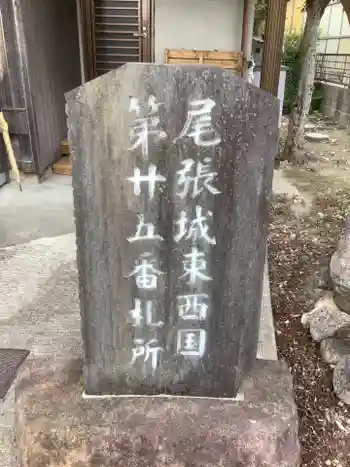 尾張城東西国
第廿五番札所